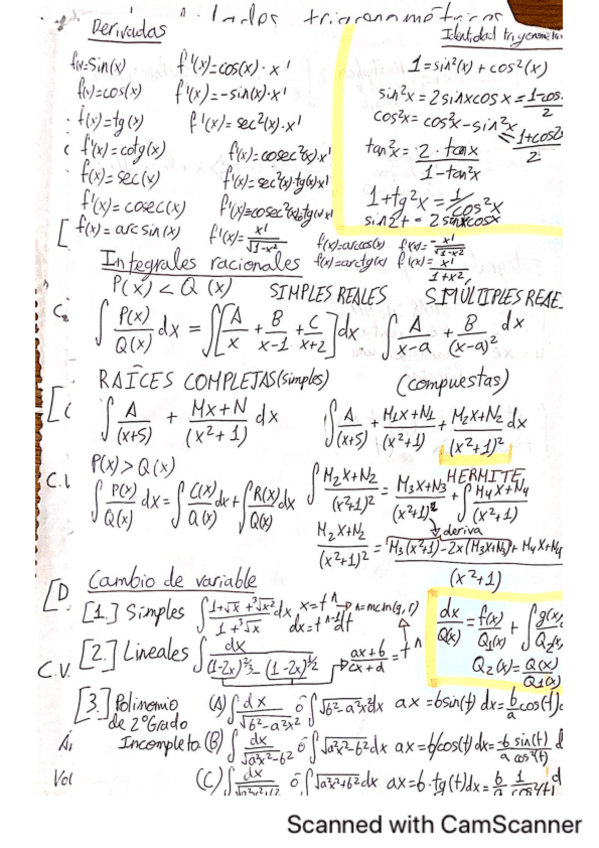 trigonométricos
Derivadas
Identidad trigonometri
f(x)=Sin(x) f'(x)=cos(x)·x'
f(x)=cos(x) f'(x)=-sin(x)·x'
f(x)=tg(x) f'(x)=sec²(x)·x'
f'(x)=cotg(x) f'(x)=cosec²(x)·x'
f(x)=sec(x) f'(x)=sec²(x)·tg(x)x'
f'(x)=cosec(x)
f(x)=arcsin(x) f'(x)=x'/√1-x²
f(x)=arccos(x) f'(x)=-x'/√1-x²
f(x)=arctg(x) f'(x)=x'/1+x²
1=sin²(x)+cos²(x)
sin²x=2sinxcosx=1-cos/2
cos²x=cos²x-sin²x=1+cos2/2
tan²x=2·tanx/1-tan²x
1+tg²x=1/cos²x
sin2t=2sinxcosx
Integrales racionales
P(x)<Q(x) SIMPLES REALES
∫P(x)/Q(x) dx=∫[A/x+B/x-1+C/x+2]dx ∫A/x-a+B/(x-a)² dx
RAÍCES COMPLEJAS(simples) (compuestas)
∫A/(x+5)+Mx+N/(x²+1) dx ∫A/(x+5)+M1x+N1/(x²+1)+M2x+N2/(x²+1)² dx
P(x)>Q(x)
∫P(x)/Q(x) dx=∫C(x)/Q(x) dx+∫R(x)/Q(x) dx
HERMITE
∫M2x+N2/(x²+1)²=M3x+N3/(x²+1)²+∫M4x+N4/(x²+1)
deriva
M2x+N2/(x²+1)²=M3(x²+1)-2x(M3x+N3)+M4x+N4/(x²+1)
Cambio de variable
[1.] Simples ∫1+√x+³√x²/1+³√x dx x=tⁿ n=mcm(q,r)
dx=tⁿ⁻¹dt
[2.] Lineales ∫dx/(1-2x)^2/3-(1-2x)^1/2 ax+b/cx+d=tⁿ
dx/Q(x)=f(x)/Q1(x)+∫g(x)/Q2(x)
Q2(x)=Q(x)/Q1(x)
[3.] Polinomio de 2º Grado Incompleto
(A)∫dx/√b²-a²x² ó ∫√b²-a²x²dx ax=bsin(t) dx=b/a cos(t)
(B)∫dx/√a²x²-b² ó ∫√a²x²-b²dx ax=b/cos(t) dx=-b sin(t)/a cos²(t)
(C)∫dx/√a²x²+b² ó ∫√a²x²+b²dx ax=b·tg(t) dx=b/a 1/cos²(t)
C.I
[D
C.V.
Vol
Scanned with CamScanner